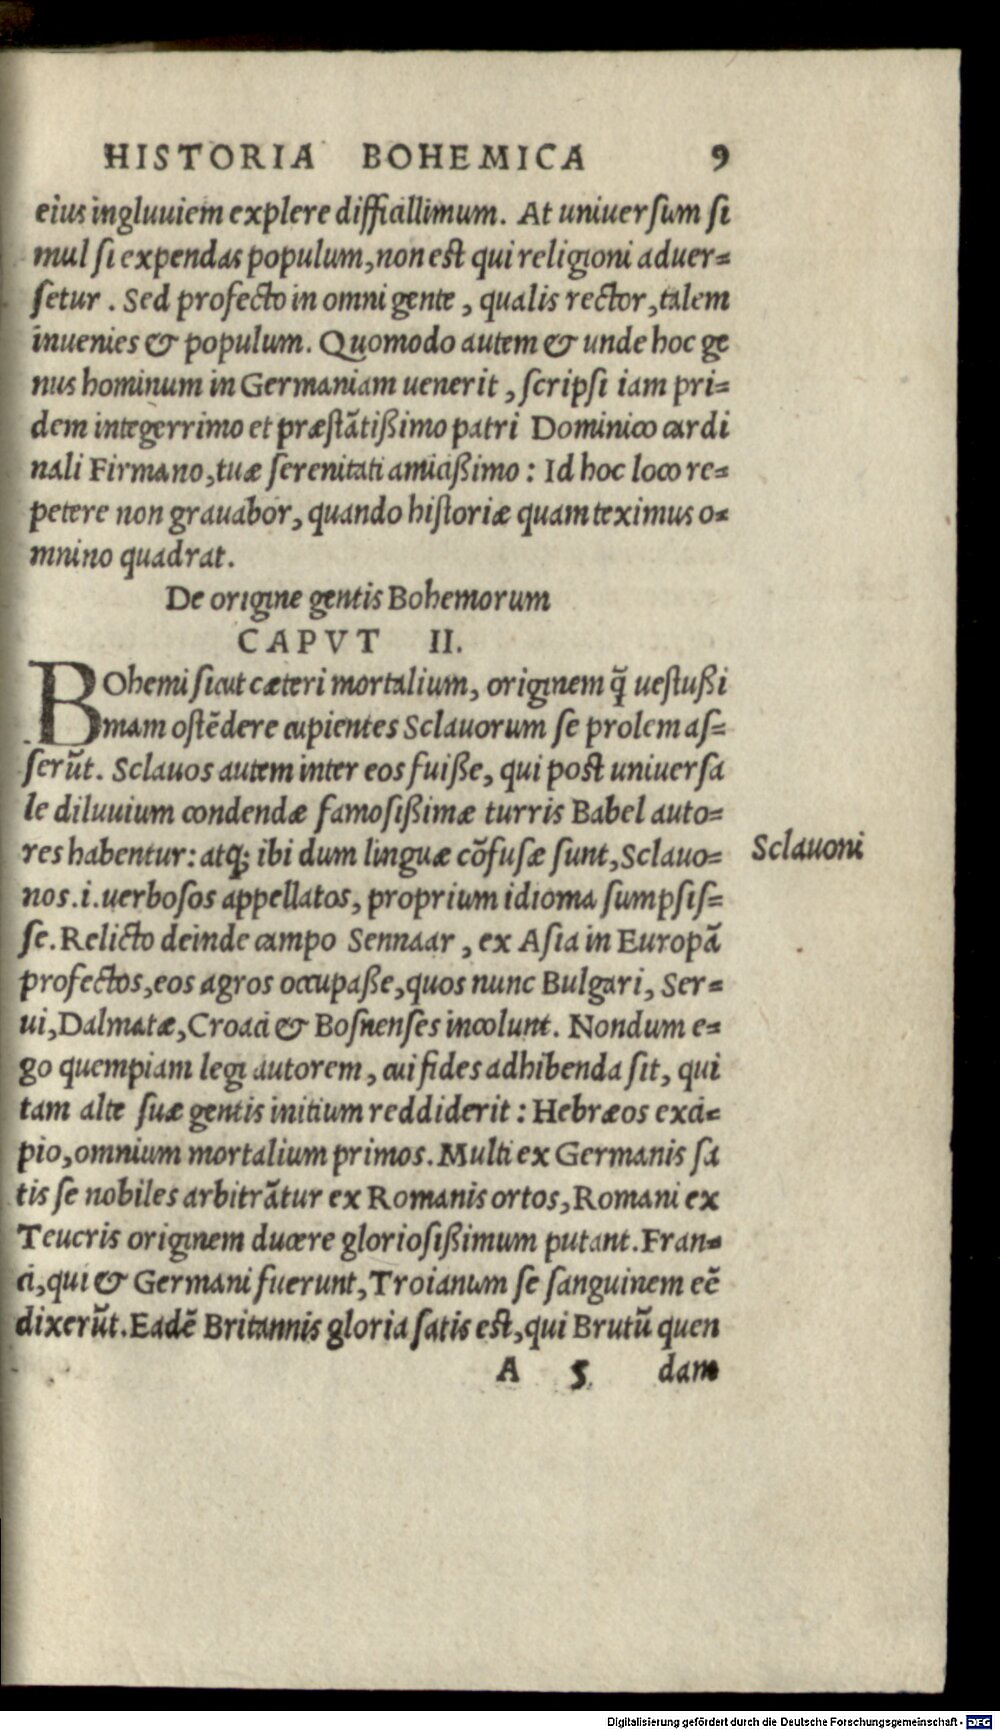 HISTORIA BOHEMICA 9
eius ingluuiem explere difficillimum. At uniuersum si
mul si expendas populum, non est qui religioni aduer=
setur. Sed profecto in omni gente, qualis rector, talem
inuenies & populum. Quomodo autem & unde hoc ge
nus hominum in Germaniam uenerit, scripsi iam pri=
dem integerrimo et præstãtißimo patri Dominico cardi
nali Firmano, tuæ serenitati amicißimo: Id hoc loco re=
petere non grauabor, quando historiæ quam teximus o=
mnino quadrat.
De origine gentis Bohemorum
CAPVT II.
BOhemi sicut cæteri mortalium, originem q̃ uestußi
mam ostẽdere cupientes Sclauorum se prolem as=
serũt. Sclauos autem inter eos fuiße, qui post uniuersa
le diluuium condendæ famosißimæ turris Babel auto=
res habentur: atq; ibi dum linguæ cõfusæ sunt, Sclauo=
nos .i. uerbosos appellatos, proprium idioma sumpsis=
se. Relicto deinde campo Sennaar, ex Asia in Europã
profectos, eos agros occupaße, quos nunc Bulgari, Ser=
ui, Dalmatæ, Croaci & Bosnenses incolunt. Nondum e=
go quempiam legi autorem, cui fides adhibenda sit, qui
tam alte suæ gentis initium reddiderit: Hebræos exci=
pio, omnium mortalium primos. Multi ex Germanis sa
tis se nobiles arbitrãtur ex Romanis ortos, Romani ex
Teucris originem ducere gloriosißimum putant. Fran=
ci, qui & Germani fuerunt, Troianum se sanguinem eẽ
dixerũt. Eadẽ Britannis gloria satis est, qui Brutũ quen
A 5 dam
Sclauoni
Digitalisierung gefördert durch die Deutsche Forschungsgemeinschaft - DFG